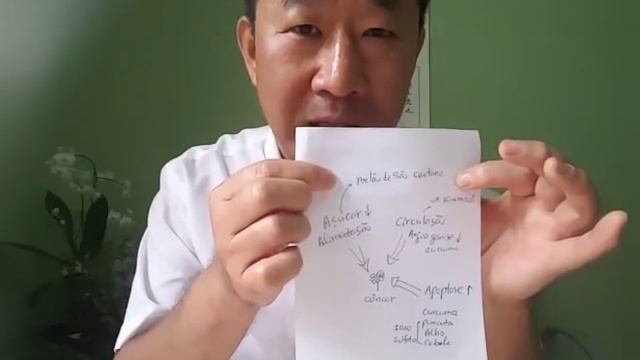 Melão de São Caetano
Açúcar↓
Alimentação
circulação
Angiogênese↓
curcuma
câncer
Apoptose↑
curcuma
pimenta
Alho
cebola
sulfeto